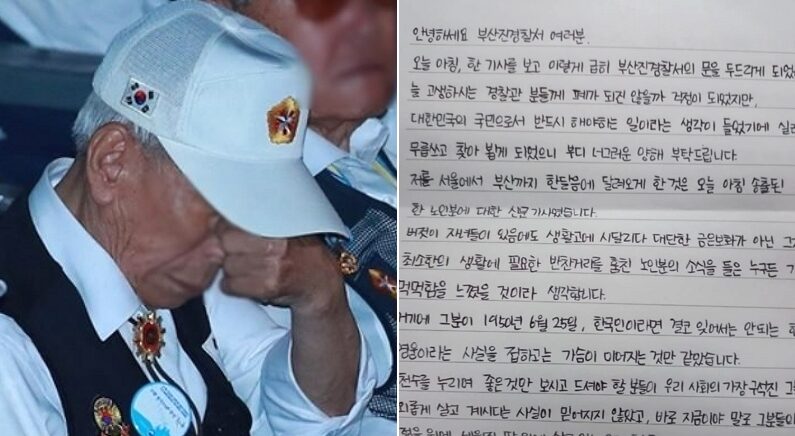 안녕하세요 부산진경찰서 여러분.
오늘 아침, 한 기사를 보고 이렇게 급히 부산진경찰서의 문을 두드리게 되었
늘 고생하시는 경찰관 분들께 폐가 되진 않을까 걱정이 되었지만,
대한민국의 국민으로서 반드시 해야하는 일이라는 생각이 들었기에 실
무릅쓰고 찾아 뵙게 되었으니 부디 너그러운 양해 부탁드립니다.
저를 서울에서 부산까지 한달음에 달려오게 한 것은 오늘 아침 송출된
한 노인분에 대한 신문 기사였습니다.
버젓이 자녀들이 있음에도 생활고에 시달리다 대단한 금은보화가 아닌 그
최소한의 생활에 필요한 반찬거리를 훔친 노인분의 소식을 들은 누구든
먹먹함을 느꼈을 것이라 생각합니다.
거기에 그분이 1950년 6월 25일, 한국인이라면 결코 잊어서는 안되는
영웅이라는 사실을 접하고는 가슴이 미어지는 것만 같았습니다.
천수를 누리며 좋은것만 보시고 드셔야 할 분들이 우리 사회의 가장 구석진
외롭게 살고 계시다는 사실이 믿어지지 않았고, 바로 지금이야 말로 그분들